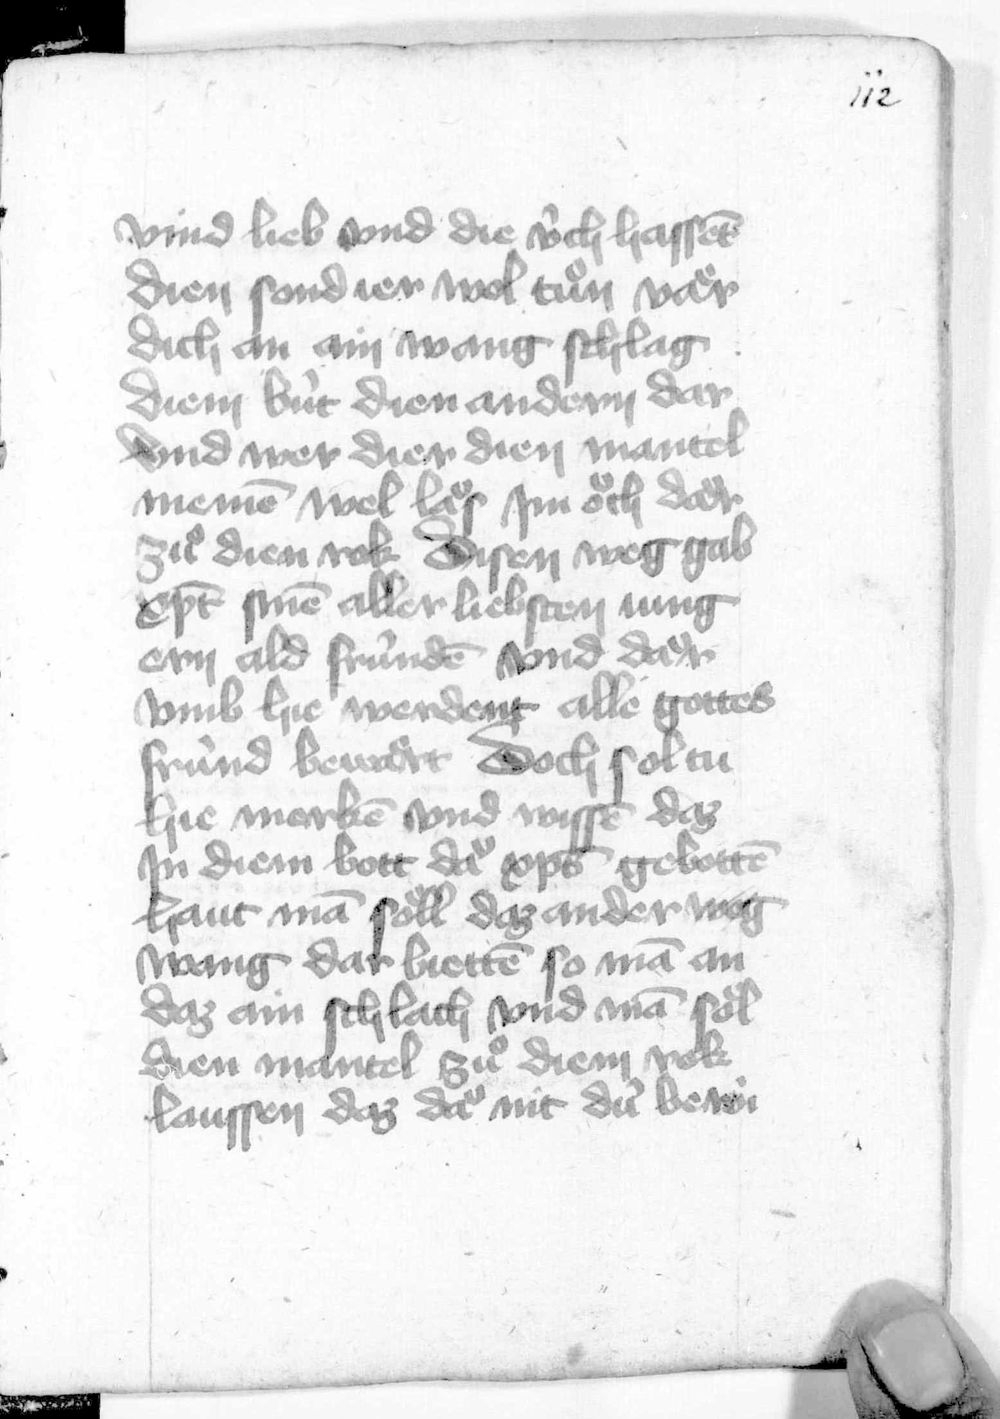 112
vind lieb vnd die v̍ch hassent̄
dien sond ier wol tuͦn waͤr
dich an ain wang schlag
diem bu̍t dien andern dar
vnd wer dier dien mantel
nemē wel laͧs im oͧch daͤr
zuͦ dien rok Disen weg gab
xp̄t sinē aller liebsten iung
ern ald fru̍ndē vnd daͤr
vmb hie werdent alle gottes
fru̍nd bewaͤrt Doch soltu
hie merkē vnd wissē daz
in diem bott daͧ xp̄s gebottē
haut mā soͤll daz ander wag
wang dar biettē so mā an
daz ain schlach vnd mā soͤl
dien mantel zuͦ diem rok
laussen daz daͧ nit du̍ bewi